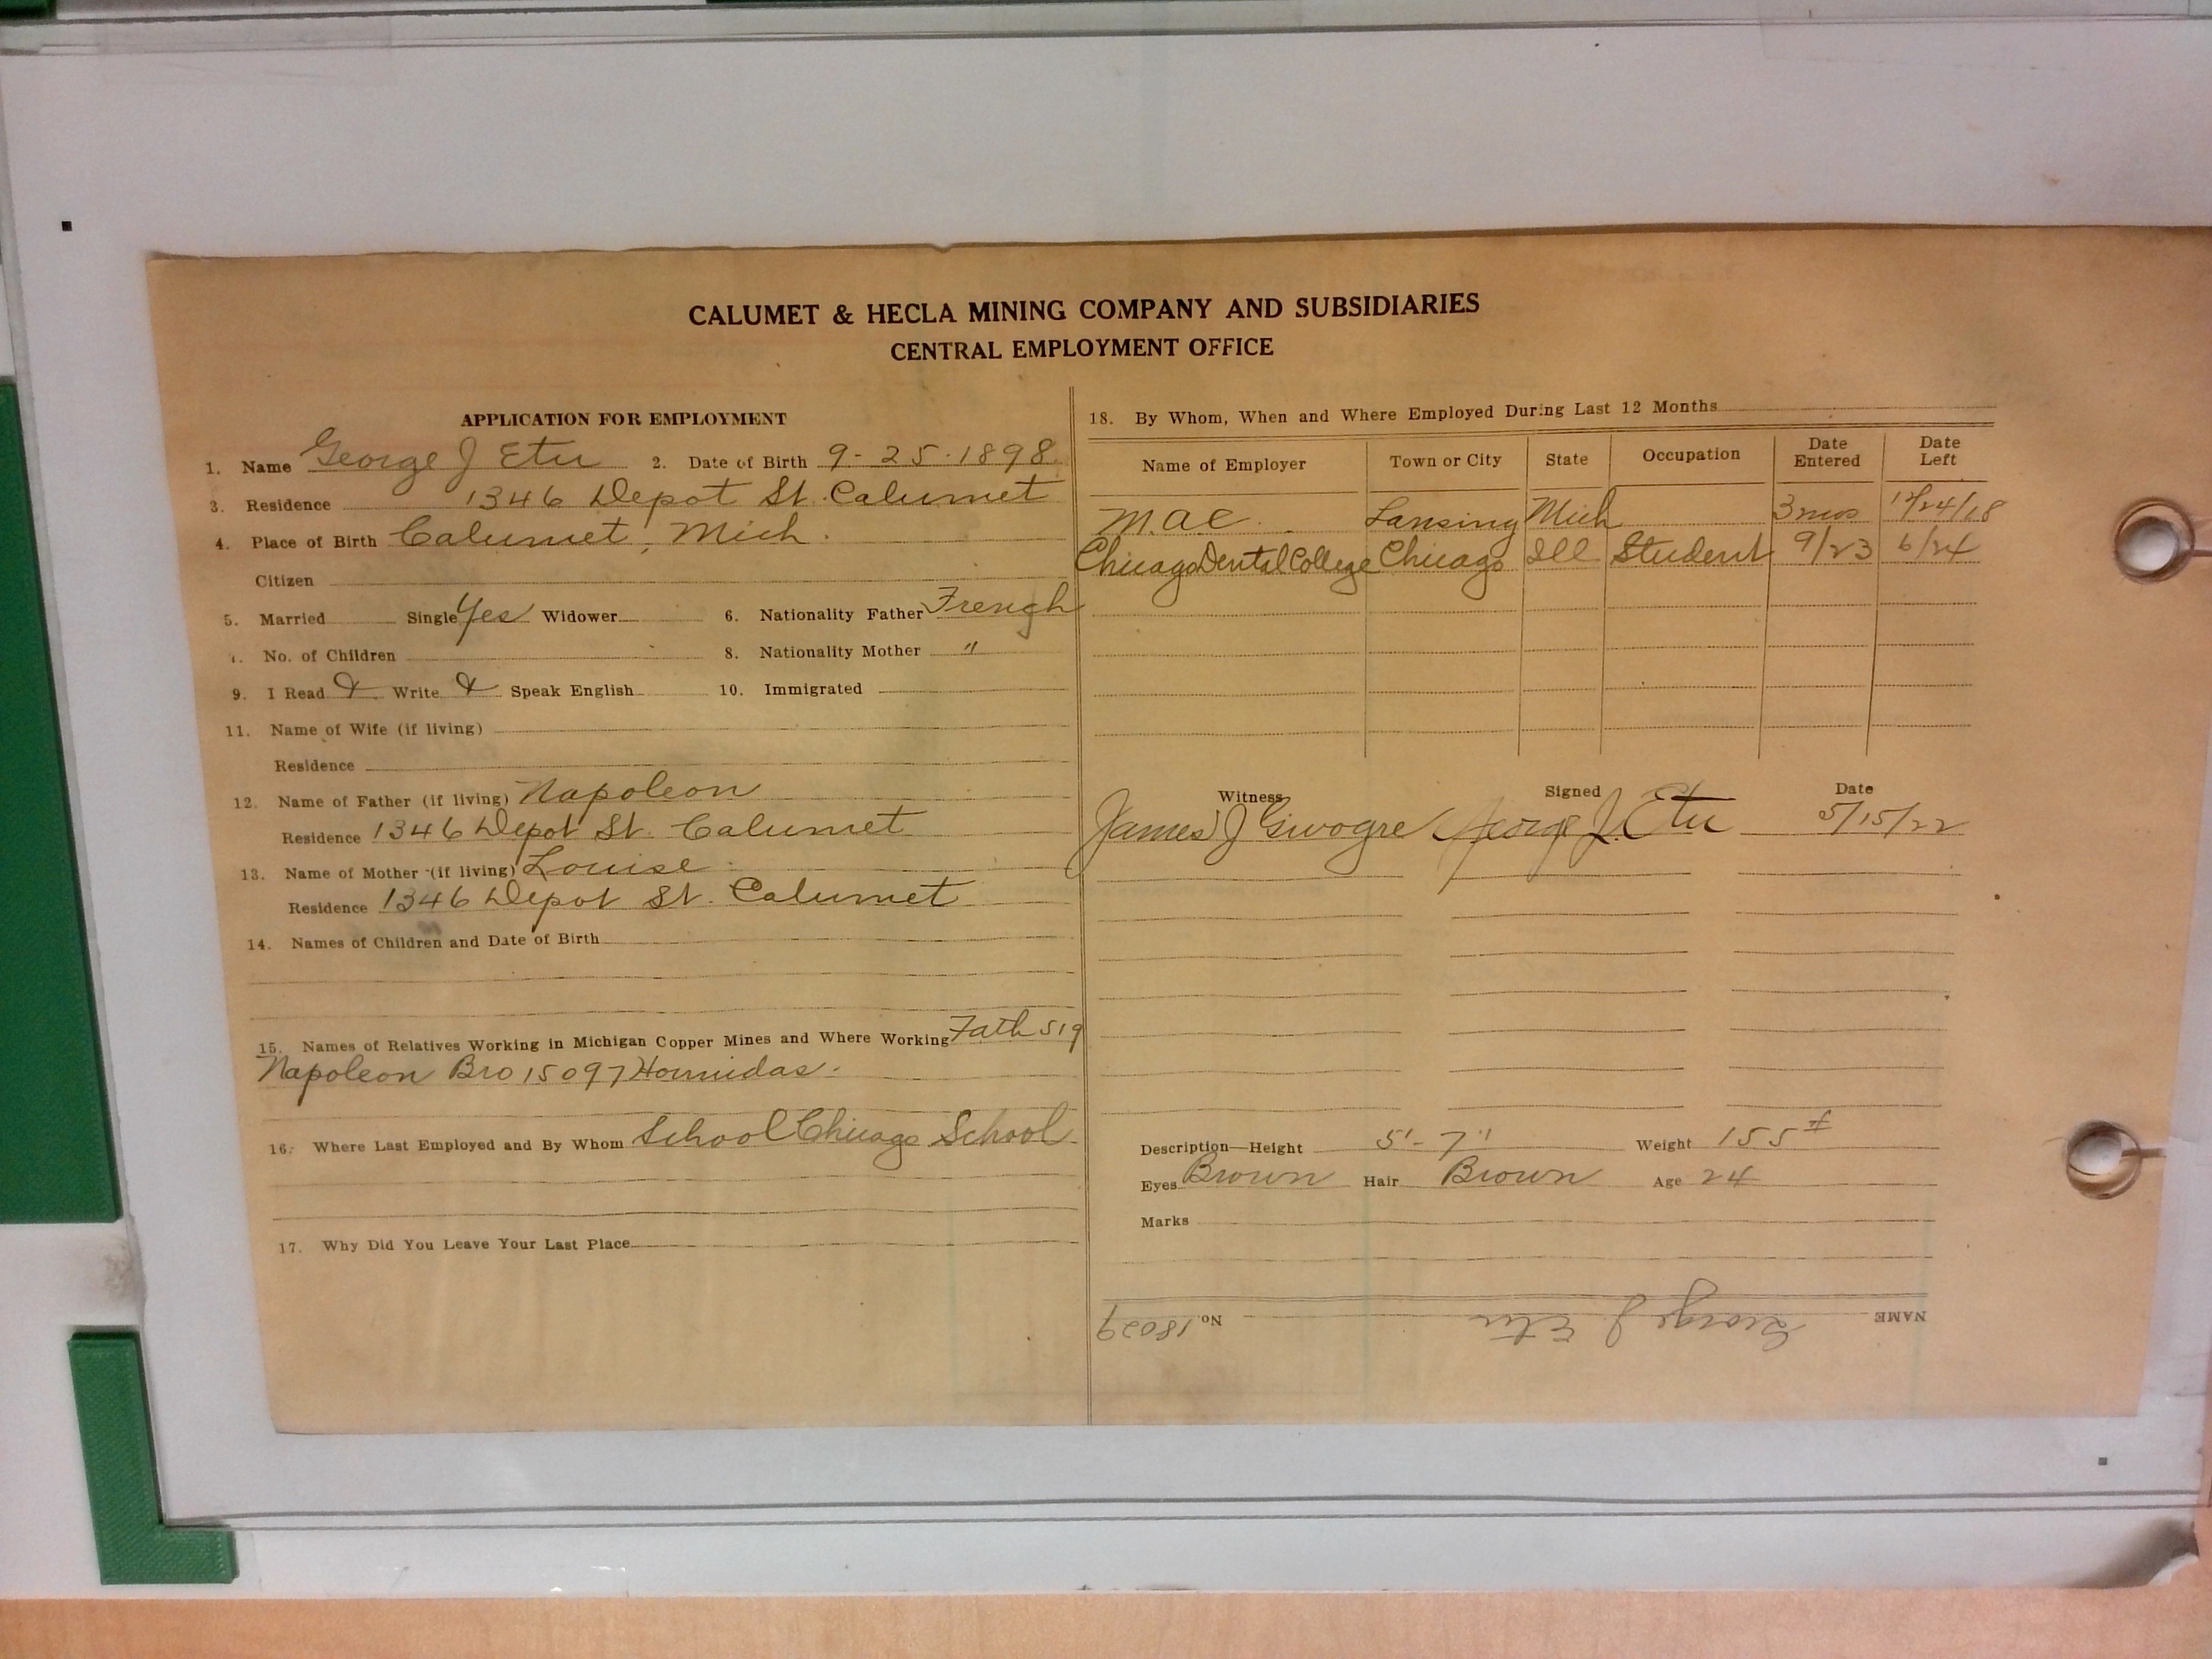 CALUMET & HECLA MINING COMPANY AND SUBSIDIARIES
CENTRAL EMPLOYMENT OFFICE
APPLICATION FOR EMPLOYMENT
1. Name George J Etu 2. Date of Birth 9-25-1898
3. Residence 1346 Depot St. Calumet
4. Place of Birth Calumet, Mich.
Citizen
5. Married Single Yes Widower 6. Nationality Father French
7. No. of Children 8. Nationality Mother "
9. I Read & Write & Speak English 10. Immigrated
11. Name of Wife (if living)
Residence
12. Name of Father (if living) Napoleon
Residence 1346 Depot St. Calumet
13. Name of Mother (if living) Louise
Residence 1346 Depot St. Calumet
14. Names of Children and Date of Birth
15. Names of Relatives Working in Michigan Copper Mines and Where Working Fath 519
Napoleon Bro 15097 Hormidas.
16. Where Last Employed and By Whom School Chicago School
17. Why Did You Leave Your Last Place
18. By Whom, When and Where Employed During Last 12 Months
Name of Employer Town or City State Occupation Date Entered Date Left
M.A.C. Lansing Mich 3 mos 12/24/18
Chicago Dental College Chicago Ill Student 9/23 6/24
Witness Signed Date
James J George J. Etu 5/15/22
Description—Height 5'-7" Weight 155 #
Eyes Brown Hair Brown Age 24
Marks
NAME George J Etu No. 18029